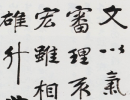 文以氣
審理不
宏雖相
雄升